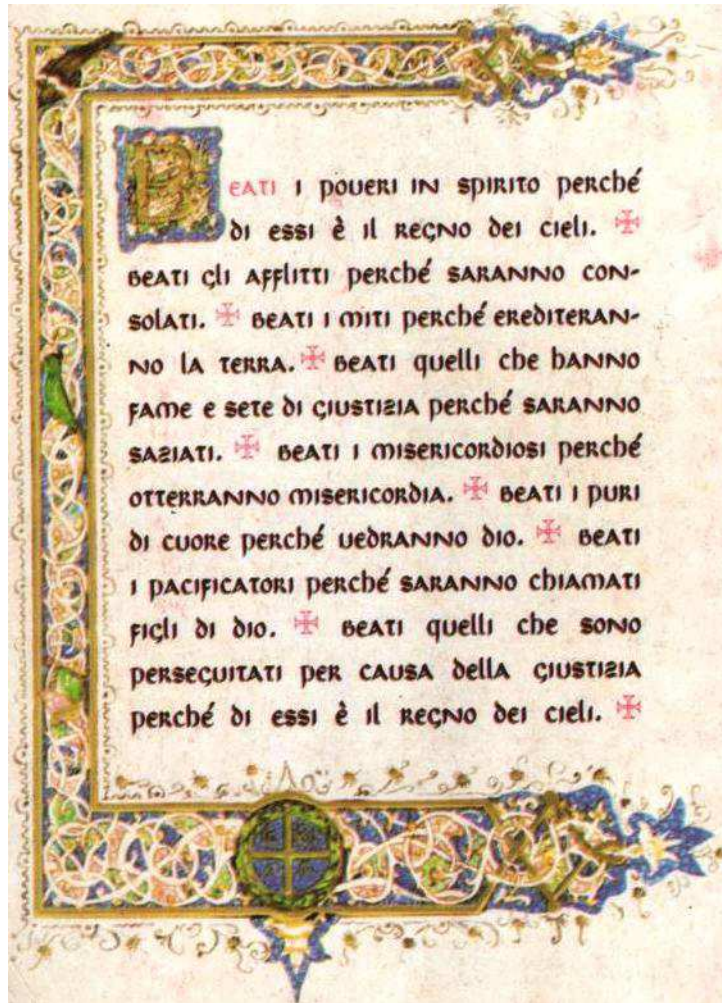 BEATI I POVERI IN SPIRITO perché
di essi è il REGNO dei cieli. ✠
BEATI gli AFFLITTI perché SARANNO CON-
solati. ✠ BEATI i MITI perché EREDITERAN-
NO la TERRA. ✠ BEATI quelli che hanno
FAME e sete di GIUSTIZIA perché SARANNO
SAZIATI. ✠ BEATI i MISERICORDIOSI perché
OTTERRANNO MISERICORDIA. ✠ BEATI i PURI
di CUORE perché VEDRANNO DIO. ✠ BEATI
i PACIFICATORI perché SARANNO chiamati
FIGLI di DIO. ✠ BEATI quelli che SONO
PERSEGUITATI PER CAUSA della GIUSTIZIA
perché di essi è il REGNO dei cieli. ✠